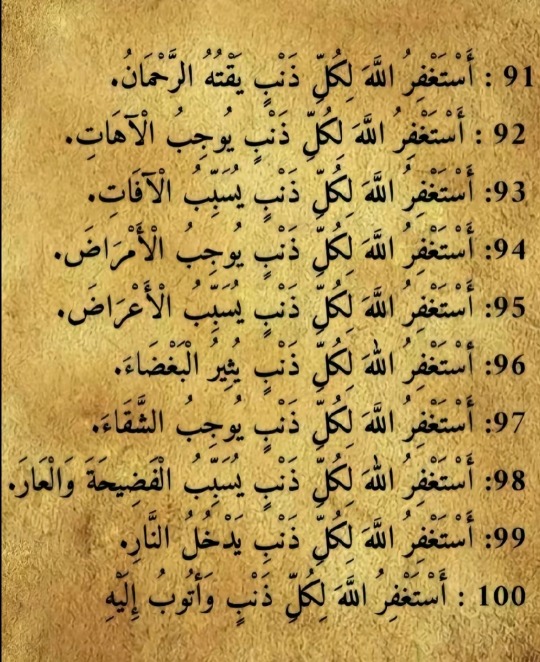 91 : أَسْتَغْفِرُ اللَّهَ لِكُلِّ ذَنْبٍ يَقْتُهُ الرَّحْمَانُ.
92 : أَسْتَغْفِرُ اللَّهَ لِكُلِّ ذَنْبٍ يُوجِبُ الْآهَاتِ.
93: أَسْتَغْفِرُ اللَّهَ لِكُلِّ ذَنْبٍ يُسَبِّبُ الْآفَاتِ.
94: أَسْتَغْفِرُ اللَّهَ لِكُلِّ ذَنْبٍ يُوجِبُ الْأَمْرَاضَ.
95: أَسْتَغْفِرُ اللَّهَ لِكُلِّ ذَنْبٍ يُسَبِّبُ الْأَعْرَاضَ.
96: أَسْتَغْفِرُ اللهَ لِكُلِّ ذَنْبٍ يُثِيرُ الْبَغْضَاءَ.
97: أَسْتَغْفِرُ اللَّهَ لِكُلِّ ذَنْبٍ يُوجِبُ الشَّقَاءَ.
98: أَسْتَغْفِرُ اللهَ لِكُلِّ ذَنْبٍ يُسَبِّبُ الْفَضِيحَةَ وَالْعَارَ.
99: أَسْتَغْفِرُ اللَّهَ لِكُلِّ ذَنْبٍ يَدْخُلُ النَّارِ.
100 : أَسْتَغْفِرُ اللَّهَ لِكُلِّ ذَنْبٍ وَأَتُوبُ إِلَيْهِ